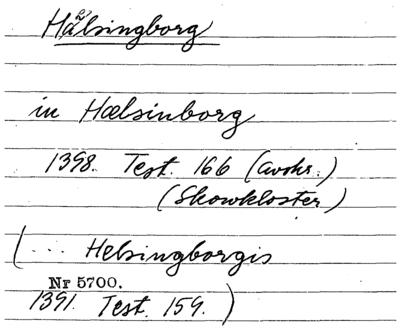 Hälsingborg
in Hælsinborg
1398. Test. 166 (avskr.)
(Skowkloster)
(... Helsingborgis
Nr 5700.
1391. Test. 159.)